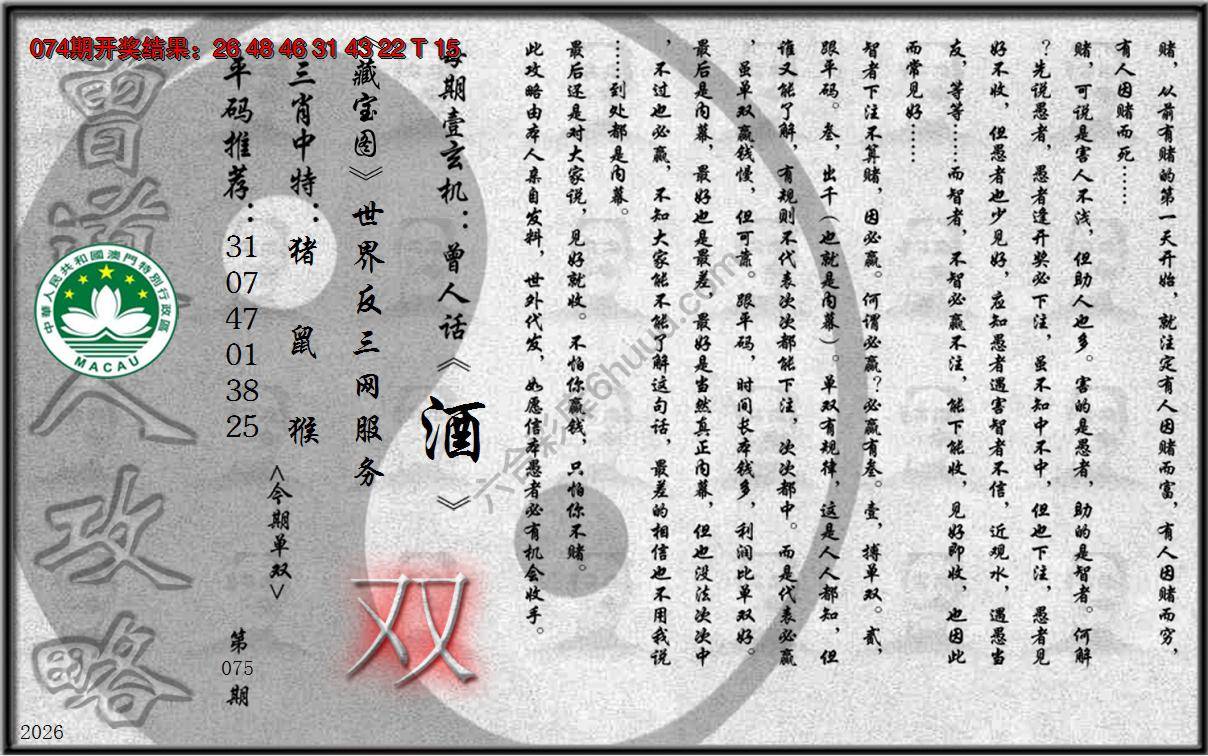 074期开奖结果：26 48 46 31 43 22 T 15
赌，从前有赌的第一天开始，就注定有人因赌而富，有人因赌而穷，
有人因赌而死……
赌，可说是害人不浅，但助人也多。害的是愚者，助的是智者。何解
？先说愚者，愚者逢开奖必下注，虽不知中不中，但也下注，愚者见
好不收，但愚者也少见好，应知愚者遇害智者不信，近观水，遇愚当
友，等等……而智者，不智必赢不注，能下能收，见好即收，也因此
而常见好……
智者下注不算赌，因必赢。何谓必赢？必赢有叁。壹，搏单双。贰，
跟平码。叁，出千（也就是内幕）。单双有规律，这是人人都知，但
谁又能了解，有规则不代表次次都能下注，次次都中。而是代表必赢
，虽单双赢钱慢，但可靠。跟平码，时间长本钱多，利润比单双好。
最后是内幕，最好也是最差，最好是当然真正内幕，但也没法次次中
，不过也必赢，不知大家能不能了解这句话，最差的相信也不用我说
……到处都是内幕。
最后还是对大家说，见好就收。不怕你赢钱，只怕你不赌。
此攻略由本人亲自发料，世外代发，如愿信本愚者必有机会收手。
每期壹玄机：曾人话《酒》
《藏宝图》世界反三网服务
双
三肖中特：猪 鼠 猴
<今期单双>
平码推荐：31 07 47 01 38 25
第075期
曾道人攻略
中華人民共和國澳門特別行政區
MACAU
2026